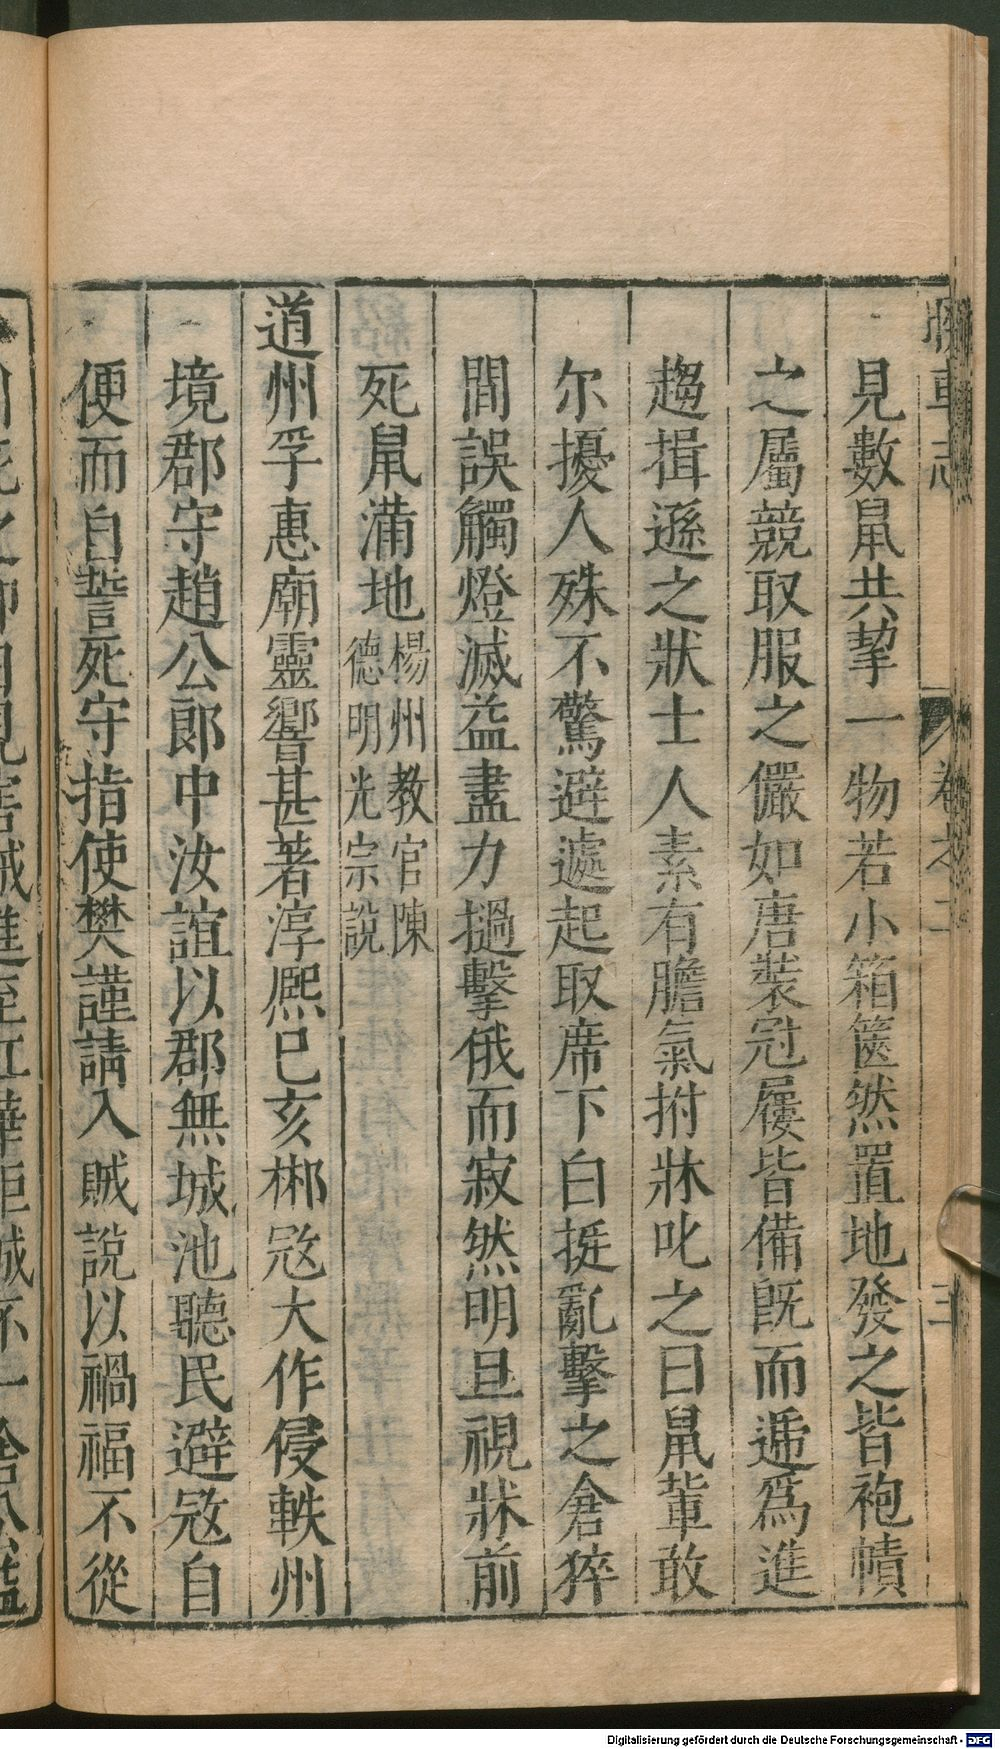 見數鼠共挈一物若小箱篋然置地發之皆袍幘
之屬競取服之儼如唐裝冠屨皆備旣而遞爲進
趨揖遜之狀士人素有膽氣拊牀叱之曰鼠輩敢
尔擾人殊不驚避遽起取席下白挺亂擊之倉猝
間誤觸燈滅益盡力撾擊俄而寂然明旦視牀前
死鼠滿地楊州教官陳
德明光宗說
道州孚惠廟靈響甚著淳熙己亥郴㓂大作侵軼州
境郡守趙公郎中汝誼以郡無城池聽民避㓂自
便而自誓死守指使樊謹請入賊說以禍福不從
Digitalisierung gefördert durch die Deutsche Forschungsgemeinschaft - DFG